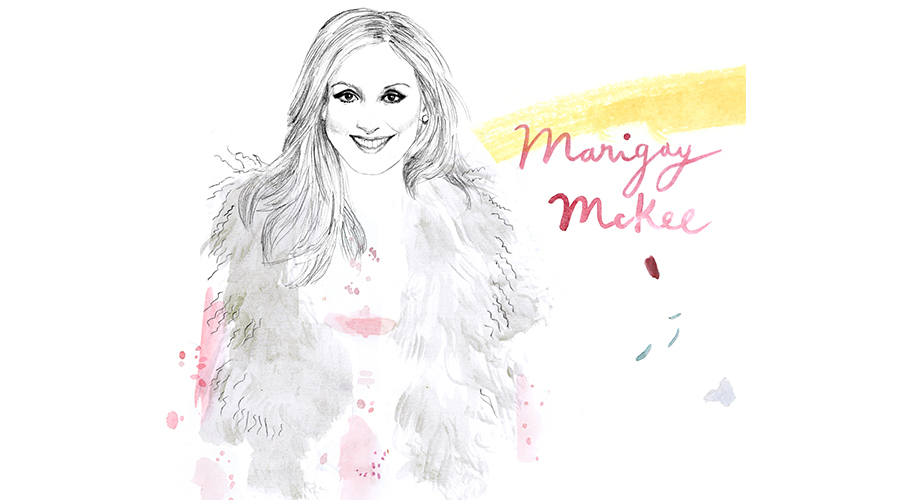 Marigay
McKee